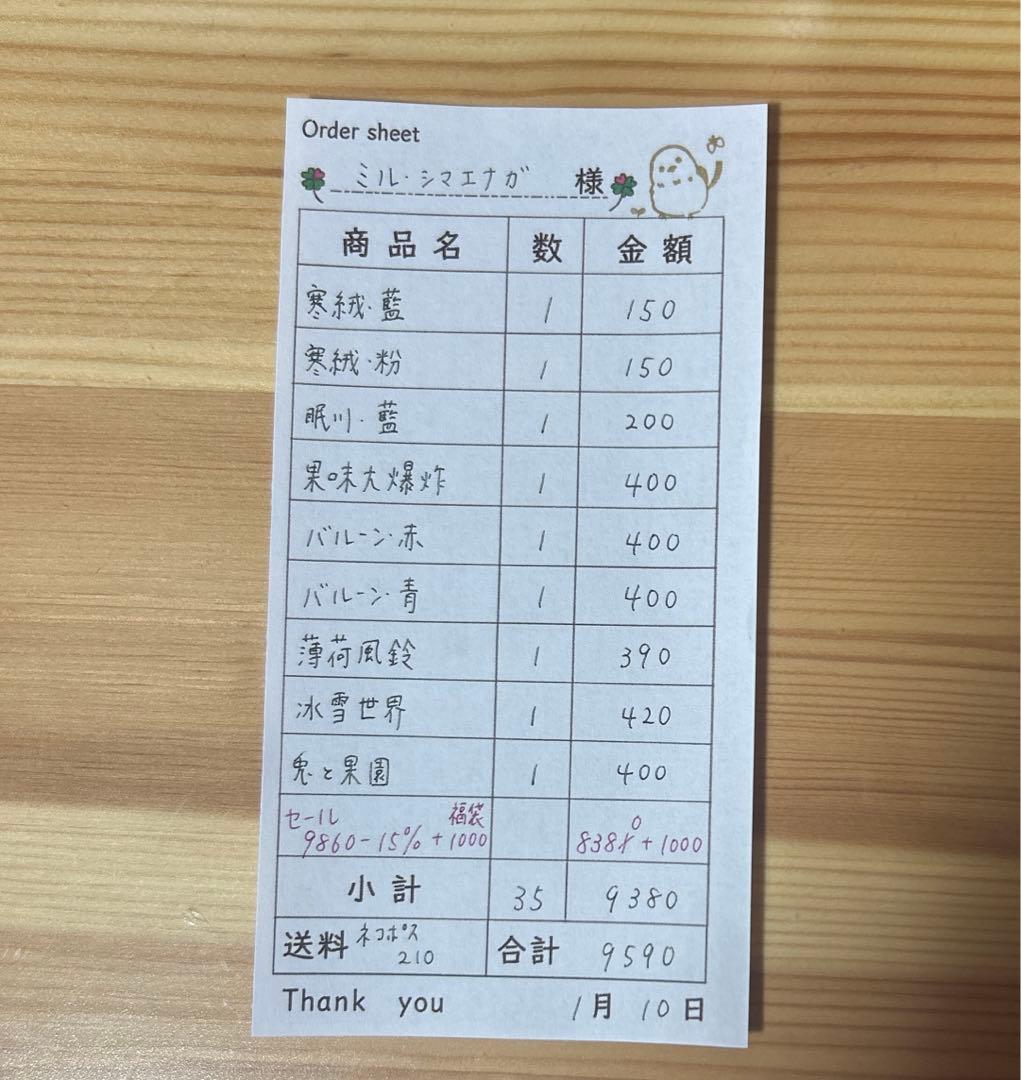 Order sheet
ミル・シマエナガ 様
商品名 数 金額
寒絨・藍 1 150
寒絨・粉 1 150
眠川・藍 1 200
果味大爆炸 1 400
バルーン・赤 1 400
バルーン・青 1 400
薄荷風鈴 1 390
冰雪世界 1 420
兎と果園 1 400
セール 福袋 0
9860-15%+1000 8381+1000
小計 35 9380
送料 ネコポス 210 合計 9590
Thank you 1月10日